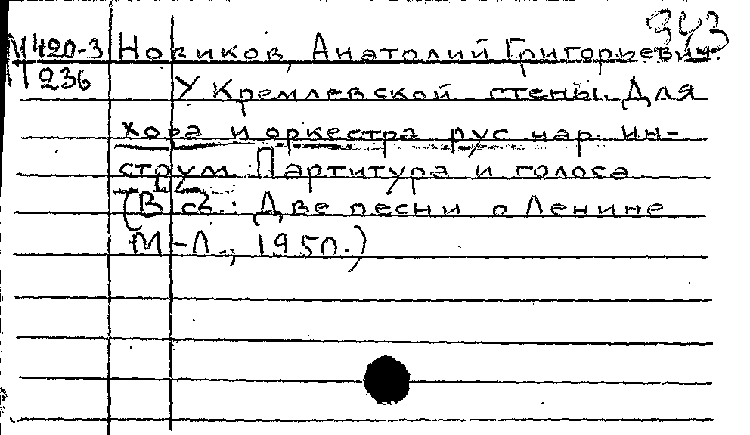 943
М 420-3 Новиков, Анатолий Григорьевич.
236
У Кремлевской стены. Для
хора и оркестра рус. нар. ин-
струм. Партитура и голоса
(В сб.: Две песни о Ленине
М.-Л., 1950.)